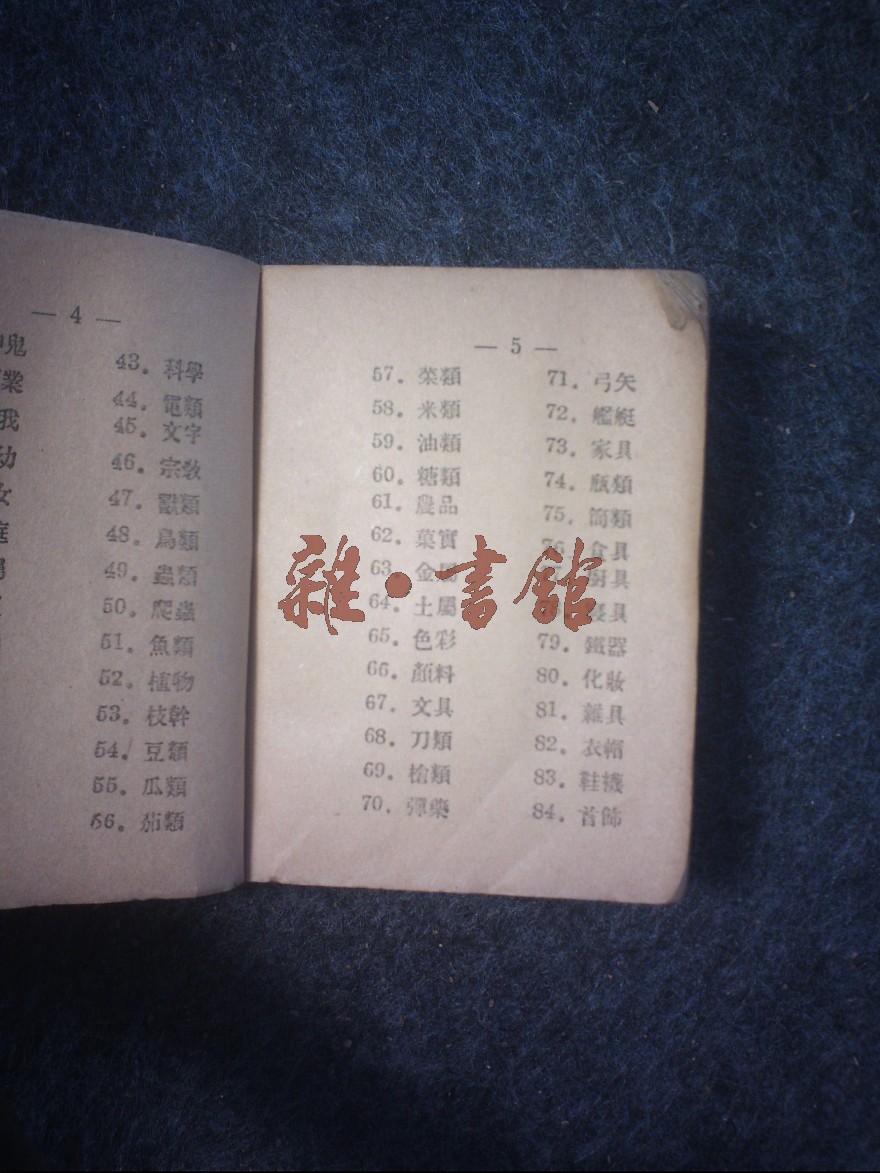 — 4 —
鬼
業
我
幼
女
庭
43. 科學
44. 電類
45. 文字
46. 宗教
47. 獸類
48. 鳥類
49. 蟲類
50. 爬蟲
51. 魚類
52. 植物
53. 枝幹
54. 豆類
55. 瓜類
56. 茄類
— 5 —
57. 菜類
58. 米類
59. 油類
60. 糖類
61. 農品
62. 菓實
63. 金屬
64. 土屬
65. 色彩
66. 顏料
67. 文具
68. 刀類
69. 槍類
70. 彈藥
71. 弓矢
72. 艦艇
73. 家具
74. 瓶類
75. 筒類
76. 食具
77. 厨具
78. 寢具
79. 鐵器
80. 化妝
81. 雜具
82. 衣帽
83. 鞋襪
84. 首飾
雜·書館